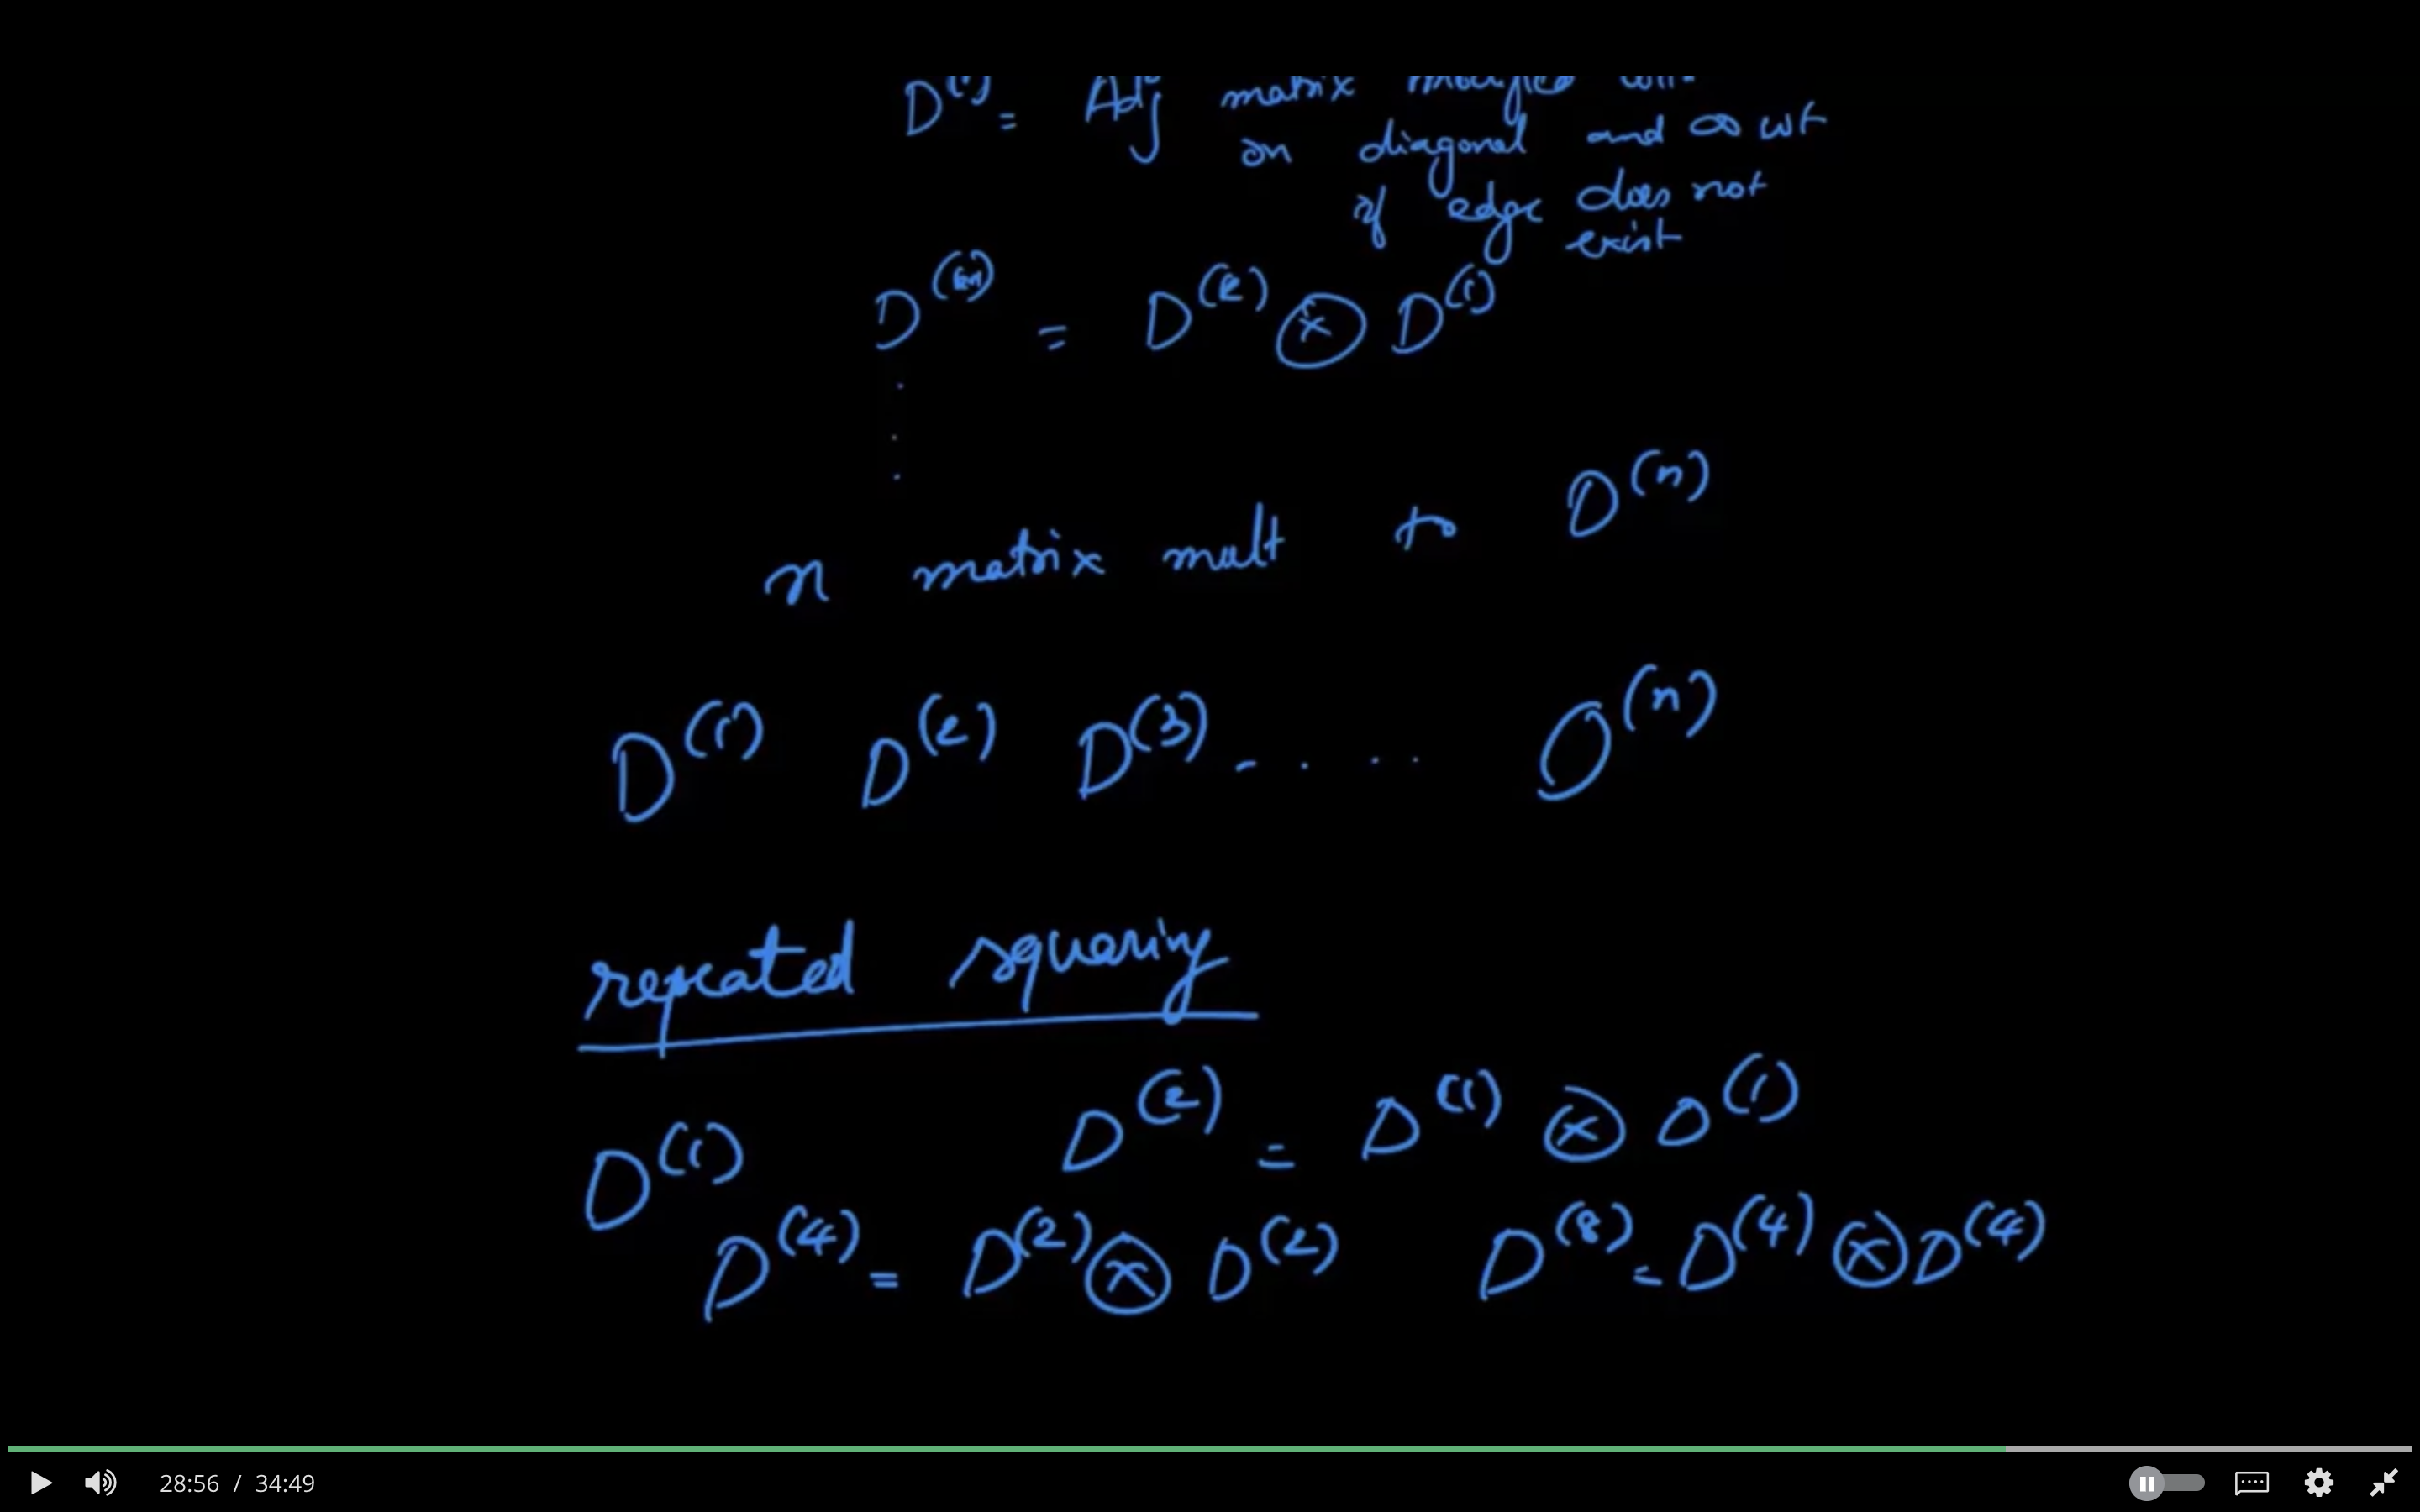 D^(1) = Adj matrix modified with
on diagonal and ∞ wt
if edge does not
exist
D^(k+1) = D^(k) ⊗ D^(1)
n matrix mult to D^(n)
D^(1) D^(2) D^(3) - . . . D^(n)
repeated squaring
D^(1) D^(2) = D^(1) ⊗ D^(1)
D^(4) = D^(2) ⊗ D^(2) D^(8) = D^(4) ⊗ D^(4)
28:56 / 34:49